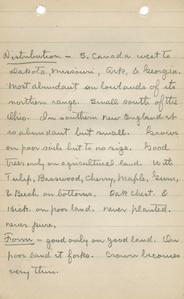 Distribution - S. Canada west to
Dakota, Missouri, Ark, & Georgia.
Most abundant on lowlands of its
northern range. Small south of the
Ohio. In southern New England it
so abundant but small. Grows
on poor soils but to no size. Good
trees only on agricultural land. With
Tulip, Basswood, Cherry, Maple, Gum,
& Beech on bottoms. Oak Chest. &
Hick. on poor land. never planted.
never pure.
Form - good only on good land. On
poor land it forks. Crown becomes
very thin.